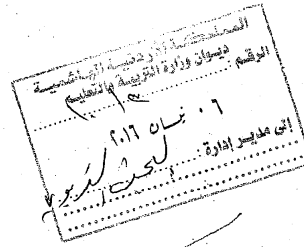 المملكة الأردنية الهاشمية
ديوان وزارة التربية والتعليم
الرقم :
٠٦ نيسان ٢٠١٦
إلى مدير إدارة :
للبحث التربوي